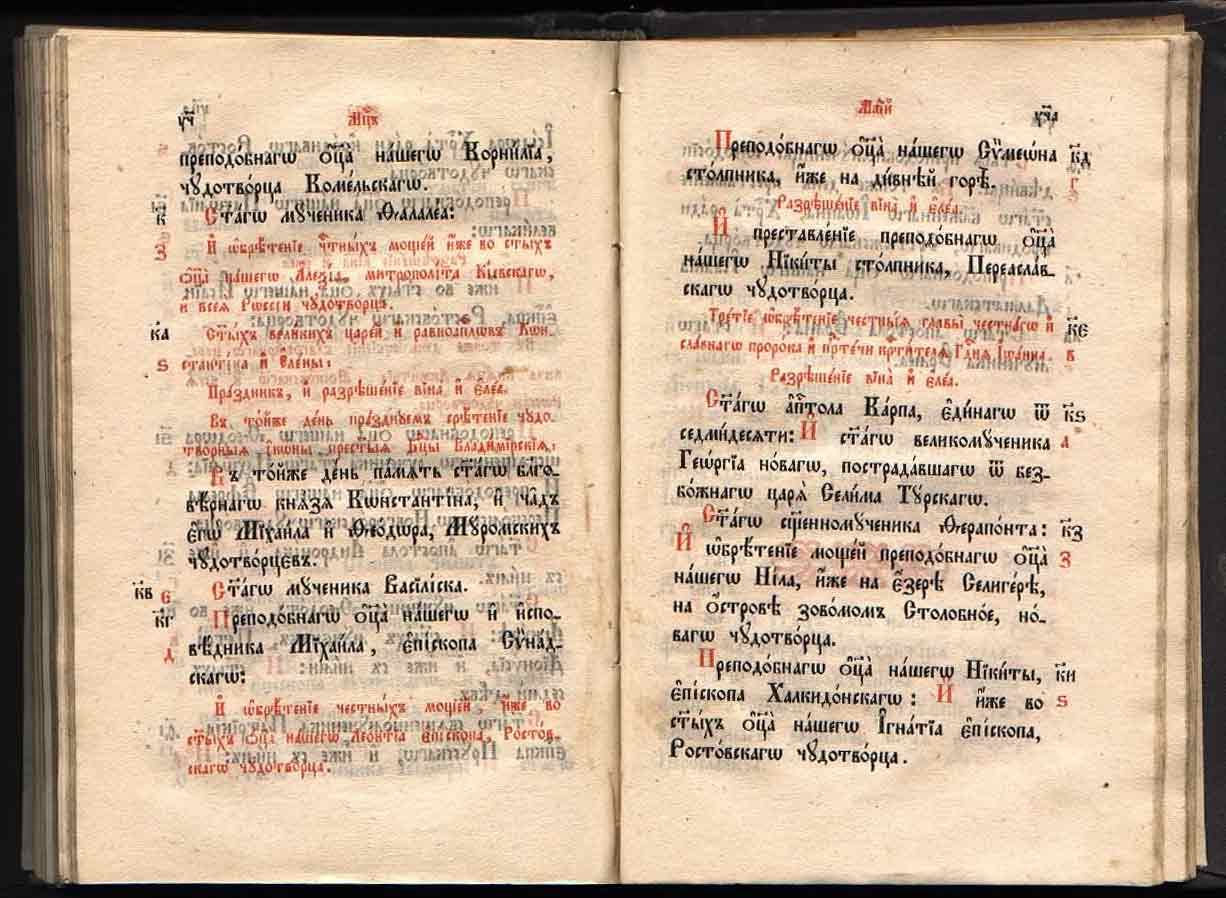 уч҃ Мц҇ъ
преподо́бнагѡ ѻ҆ц҃а̀ на́шегѡ Корни́лїа,
чꙋдотво́рца Коме́льскагѡ.
к҃ Ст҃а́гѡ мꙋ́ченика Ѳалале́а:
з И҆ ѡ҆брѣ́тенїе чⷭ҇тны́хъ моще́й и҆́же во ст҃ы́хъ
ѻ҆ц҃а̀ на́шегѡ Алеѯі́а, митрополі́та Кі́евскагѡ,
и всеѧ̀ Рѡссі́и чꙋдотво́рца.
ка Ст҃ы́хъ вели́кихъ царе́й и҆ равноап҇лѡвъ Кѡн-
ѕ станті́на и҆ Е҆ле́ны:
Пра́здникъ, и҆ разрѣше́нїе вїна̀ и҆ є҆ле́а.
Въ то́йже де́нь пра́зднꙋемъ срѣ́тенїе чꙋдо-
тво́рныѧ і҆ко́ны прест҃ы́ѧ Бц҃ы Влади́мірскїѧ,
Въ то́йже де́нь па́мѧть ст҃а́гѡ бл҃го-
вѣ́рнагѡ кнѧ́зѧ Кѡнстанті́на, и҆ ча̑дъ
є҆гѡ̀ Мїхаи́ла и҆ Ѳео́дѡра, Мꙋ́ромскихъ
чꙋдотво́рцєвъ.
к҃в є Ст҃а́гѡ мꙋ́ченика Васїлі́ска.
к҃г Преподо́бнагѡ ѻ҆ц҃а̀ на́шегѡ и҆ и҆спо-
д вѣ́дника Мїхаи́ла, є҆пі́скопа Сѷна́д-
скагѡ:
И҆ ѡ҆брѣ́тенїе че́стныхъ моще́й, и҆́же во
ст҃ы́хъ ѻ҆ц҃а̀ на́шегѡ Лео́нтїа є҆пі́скопа, Росто́в-
скагѡ чꙋдотво́рца.
Ма́їй уч҃а
Преподо́бнагѡ ѻ҆ц҃а̀ на́шегѡ Сѷмеѡ́на к҃д
сто́лпника, и҆́же на ди́внѣй горѣ̀. г
Разрѣше́нїе вїна̀ и҆ є҆ле́а.
И҆ преставле́нїе преподо́бнагѡ ѻ҆ц҃а̀
на́шегѡ Нїки́ты сто́лпника, Переасла́в-
скагѡ чꙋдотво́рца.
Тре́тїе ѡ҆брѣ́тенїе честны́ѧ главы̀ че́стнагѡ и҆ к҃є
сла́внагѡ проро́ка и҆ прⷣте́чи крⷭ҇ти́телѧ Гдⷭ҇нѧ І҆ѡа́нна. в
Разрѣше́нїе вїна̀ и҆ є҆ле́а.
Ст҃а́гѡ а҆пⷭ҇тола Ка́рпа, є҆ди́нагѡ ѿ к҃ѕ
седми́десѧти: И҆ ст҃а́гѡ великомꙋ́ченика а
Геѡ́ргїа но́вагѡ, пострада́вшагѡ ѿ без-
бо́жнагѡ царѧ̀ Сели́ма Тꙋ́рскагѡ.
Ст҃а́гѡ сщ҃енномꙋ́ченика Ѳерапо́нта: к҃з
И҆ ѡ҆брѣ́тенїе моще́й преподо́бнагѡ ѻ҆ц҃а̀ з
на́шегѡ Ні́ла, и҆́же на є҆́зерѣ Селиге́рѣ,
на ѻ҆́стровѣ зово́момъ Столо́бное, но́-
вагѡ чꙋдотво́рца.
Преподо́бнагѡ ѻ҆ц҃а̀ на́шегѡ Нїки́ты, к҃и
є҆пі́скопа Халкидо́нскагѡ: И҆ и҆́же во ѕ
ст҃ы́хъ ѻ҆ц҃а̀ на́шегѡ І҆гна́тїа є҆пі́скопа,
Росто́вскагѡ чꙋдотво́рца.